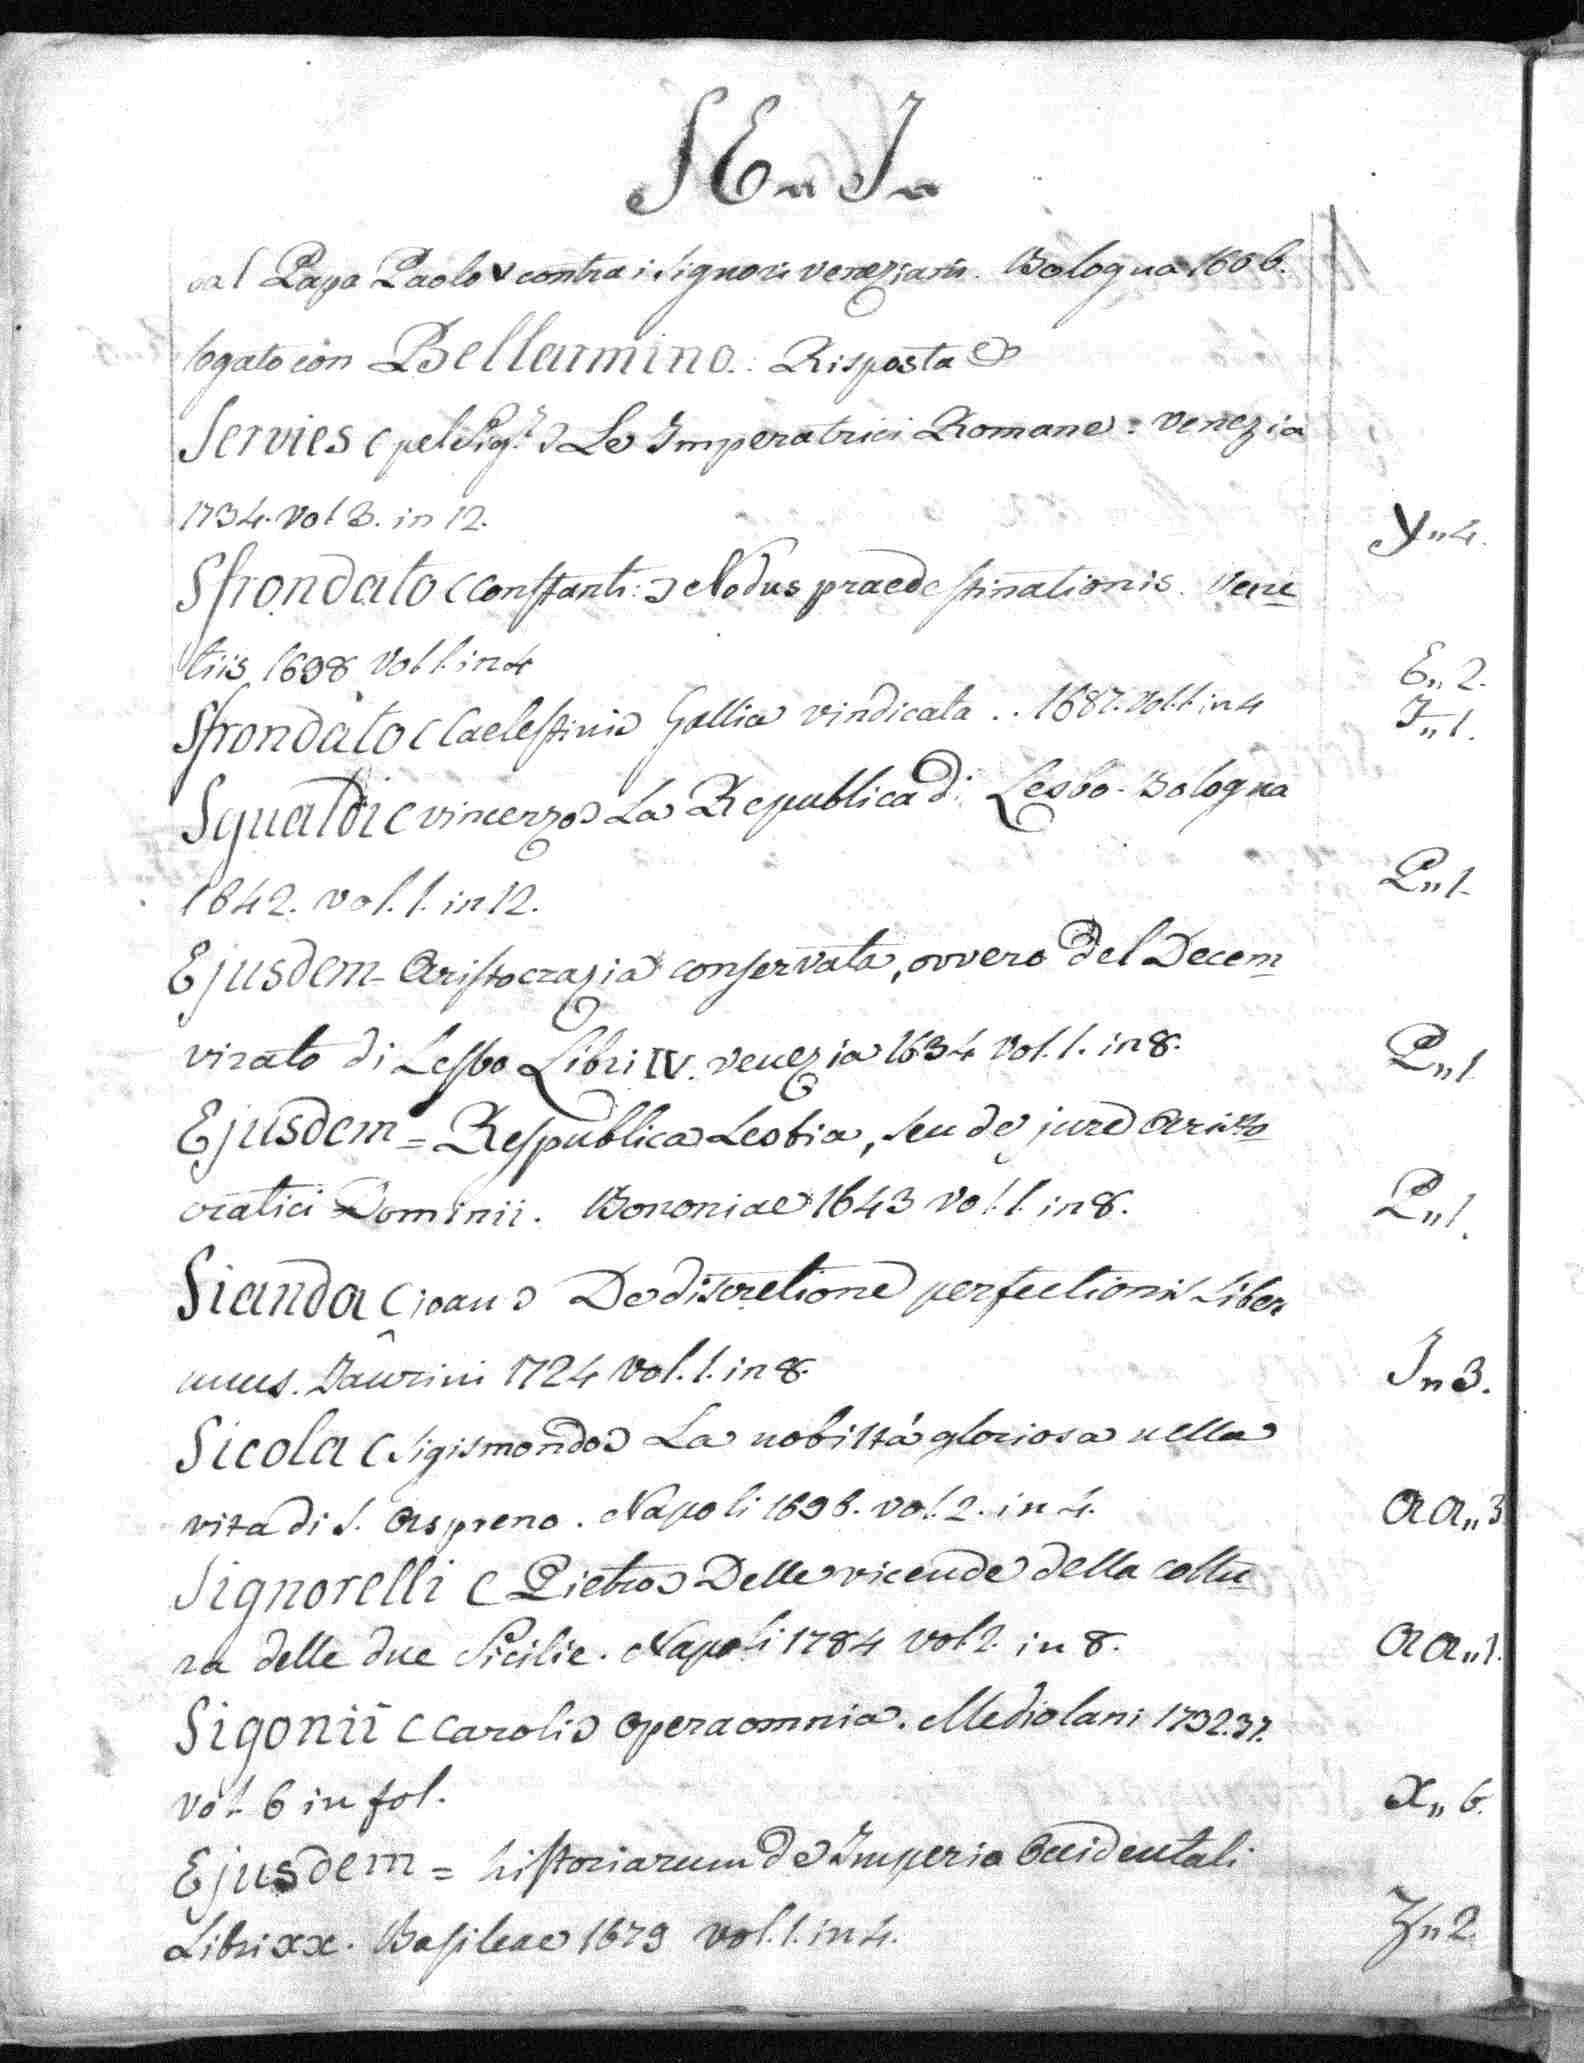 SE„ I„
dal Papa Paolo V contra i Signori veneziani. Bologna 1606.
legato con Bellarmino. Risposta &
Servies (pel Sig.r) Le Imperatrici Romane. Venezia
1734. Vol 3. in 12. Y„4.
Sfrondato (Constanti:) Nodus praedestinationis. Vene
tiis 1698 Vol 1. in 4 E„2.
Sfrondato (Caelestini) Gallia vindicata .. 1687. Vol. 1. in 4 I„1.
Squaldi (vincenzo) La Republica di Lesbo. Bologna
1642. vol. 1. in 12. P„1.
Ejusdem - Aristocrazia conservata, ovvero del Decem
virato di Lesbo Libri IV. venezia 1634 Vol. 1. in 8. P„1
Ejusdem = Respublica Lesbia, seu de jure Aristo
cratici Dominii. Bononiae 1643 vol. 1. in 8. P„1.
Sianda (ioan) De discretione perfectionis Liber
unus. Taurini 1724 Vol. 1. in 8. I„3.
Sicola (Sigismondo) La nobiltá gloriosa nella
vita di S. Aspreno. Napoli 1696. vol. 2. in 4. AA„3
Signorelli (Pietro) Delle vicende della coltu
ra delle due Sicilie. Napoli 1784 vol. 2. in 8. AA„1.
Sigonii (Caroli) Opera omnia. Mediolani 1732.37.
Vol. 6 in fol. X„6.
Ejusdem = historiarum de Imperio Occidentali
Libri xx. Basileae 1679 vol. 1. in 4. Z„2